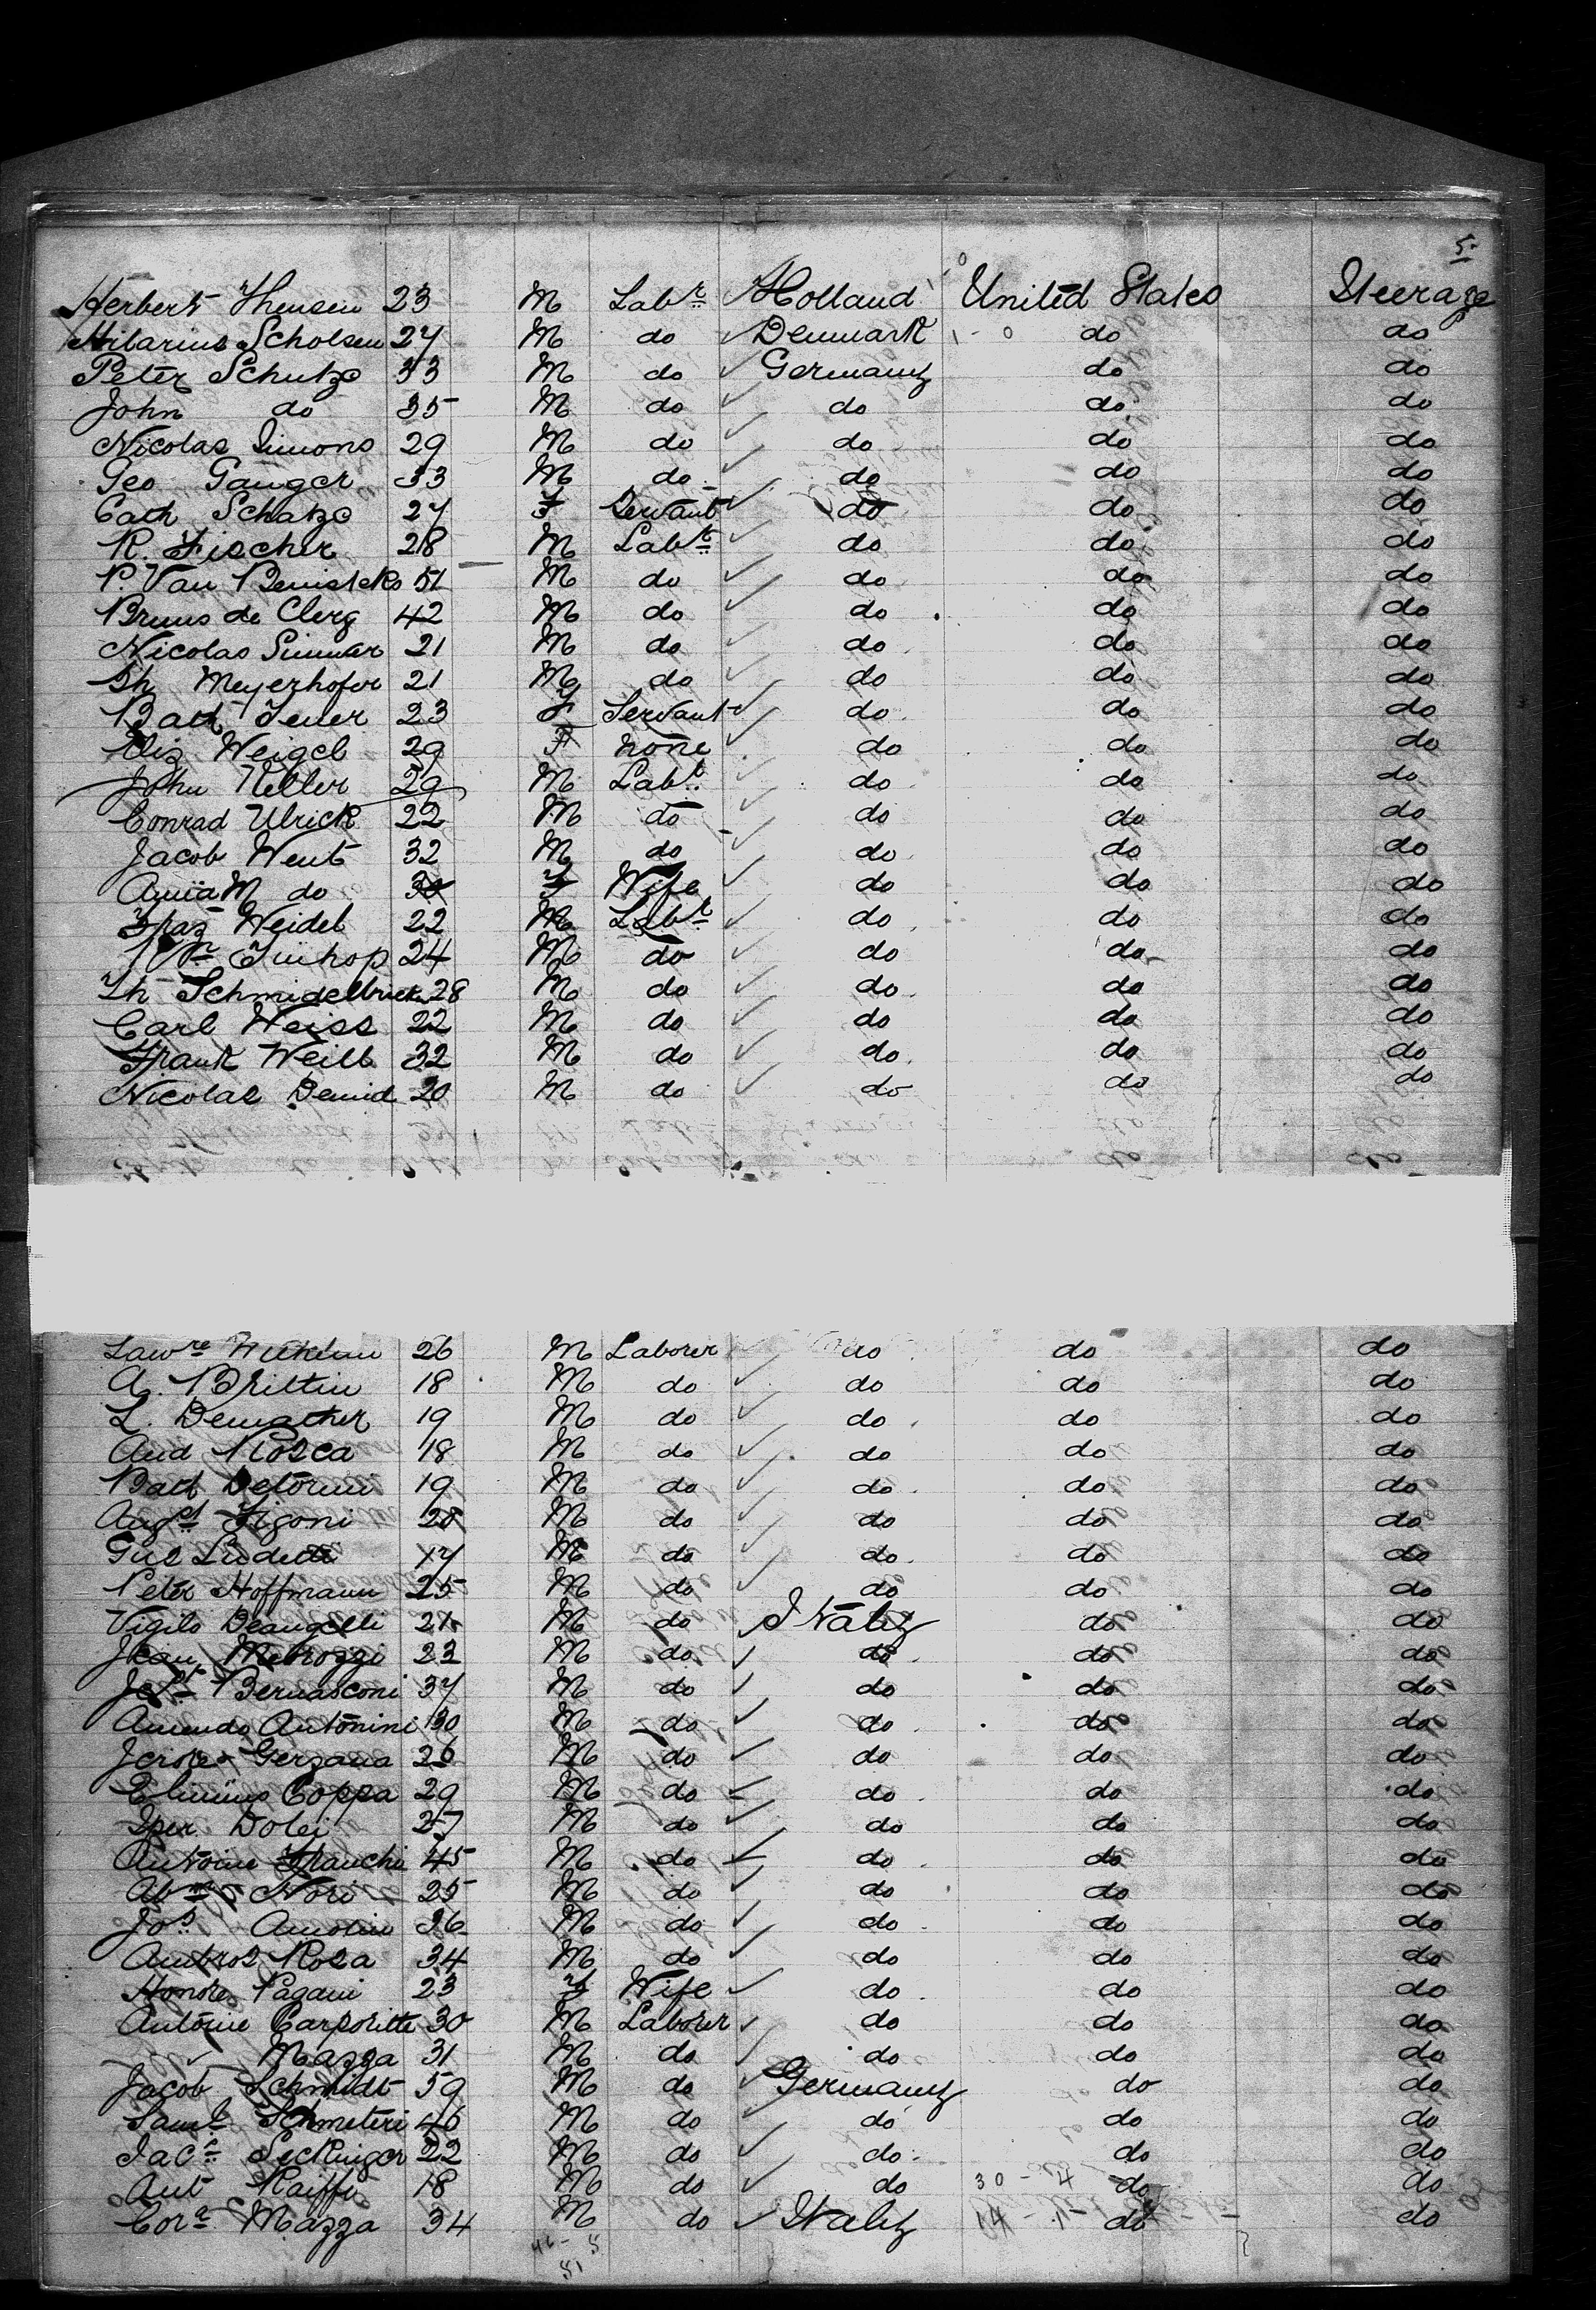 5-
Herbert Theusen 23 M Labr Holland United States Steerage
Hilarius Scholsen 27 M do Denmark do do
Peter Schutze 33 M do Germany do do
John do 35 M do do do do
Nicolas Simons 29 M do do do do
Geo Ganger 33 M do do do do
Cath Schatze 27 F Servant do do do
R. Fischer 28 M Labr do do do
P. Van 51 M do do do do
Bruns de Clerg 42 M do do do do
Nicolas Simmar 21 M do do do do
Th Meyerhofer 21 M do do do do
Bath 23 F Servant do do do
Eliz Weigel 29 F none do do do
John Keller 29 M Labr do do do
Conrad Ulrick 22 M do do do do
Jacob Went 32 M do do do do
Anna M do 30 F Wife do do do
Fraz Weidel 22 M Labr do do do
24 M do do do do
Th Schmidelbrick 28 M do do do do
Carl Weiss 22 M do do do do
Frank Weill 32 M do do do do
Nicolas Demid 20 M do do do do
Lawre 26 M Laborer do do do
A. Brittin 18 M do do do do
L. Demather 19 M do do do do
And Rosca 18 M do do do do
Batt Detorini 19 M do do do do
Augst Figoni 28 M do do do do
Gus 17 M do do do do
Peter Hoffmann 25 M do do do do
Vigilo Deangelli 21 M do Italy do do
Jean Mebrozzi 23 M do do do do
Bernasconi 37 M do do do do
Amendo Antonini 30 M do do do do
Gerzana 26 M do do do do
Coppa 29 M do do do do
Dolei 27 M do do do do
Antoine Franchi 45 M do do do do
Nori 25 M do do do do
Jos Amolin 36 M do do do do
Ambros Rosa 34 M do do do do
Honore Pagani 23 F Wife do do do
Antoine Carporitte 30 M Laborer do do do
Mazza 31 M do do do do
Jacob Schmidt 59 M do Germany do do
Saml Schmeteri 46 M do do do do
Jac Seckinger 22 M do do do do
Ant Raiffe 18 M do do 30 - 4 do do
Corn Mazza 34 M do Italy 14 - 1 - do do